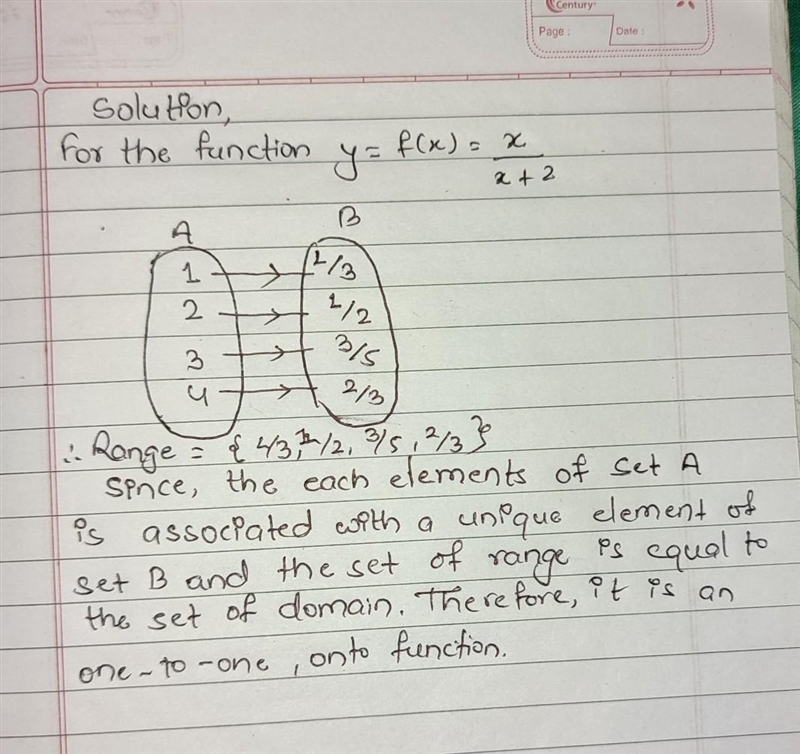 Century
Page :
Date :
Solution,
For the function y = f(x) = x/(x + 2)
A B
1 → 1/3
2 → 1/2
3 → 3/5
4 → 2/3
∴ Range = { 1/3, 1/2, 3/5, 2/3 }
Since, the each elements of set A
is associated with a unique element of
set B and the set of range is equal to
the set of domain. Therefore, it is an
one-to-one, onto function.